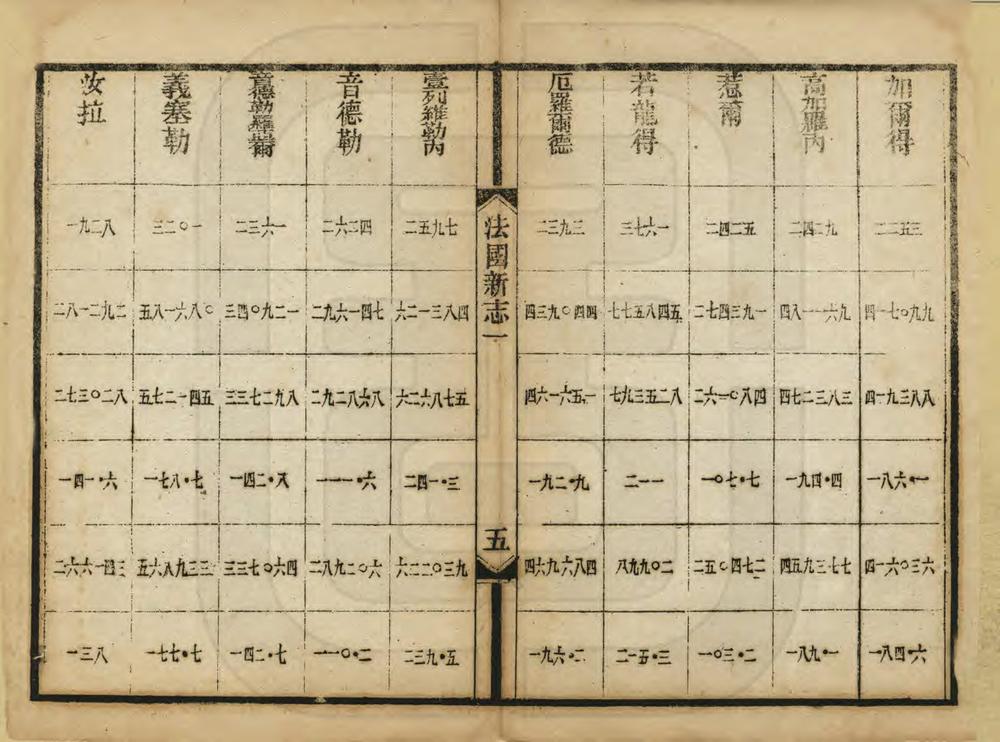 加爾得
二二五三
四一七〇九九
四一九三八八
一八六•一
四一六〇三六
一八四•六
高加羅內
二四二九
四八一一六九
四七二三八三
一九四•四
四五九三七七
一八九•一
惹爾
二四二五
二七四三九一
二六〇〇八四
一〇七•七
二五〇四七二
一〇三•二
若龍得
三七六一
七七五八四五
七九三五二八
二一一
八九九〇二
二一五•三
厄羅爾德
二三九三
四三九〇四四
四六一六五一
一九二•九
四六九六八四
一九六•二
法國新志一
五
壹列維勒內
二五九七
六二一三八四
六二六八七五
二四一•三
六二二〇三九
二三九•五
音德勒
二六二四
二九六一四七
二九二八六八
一一一•六
二八九二〇六
一一〇•二
意德勒羅爾
二三六一
三四〇九二一
三三七二九八
一四二•八
三三七〇六四
一四二•七
義塞勒
三二〇一
五八一六八〇
五七二一四五
一七八•七
五六八九三三
一七七•七
汝拉
一九二八
二八一二九二
二七三〇二八
一四一•六
二六六一四三
一三八